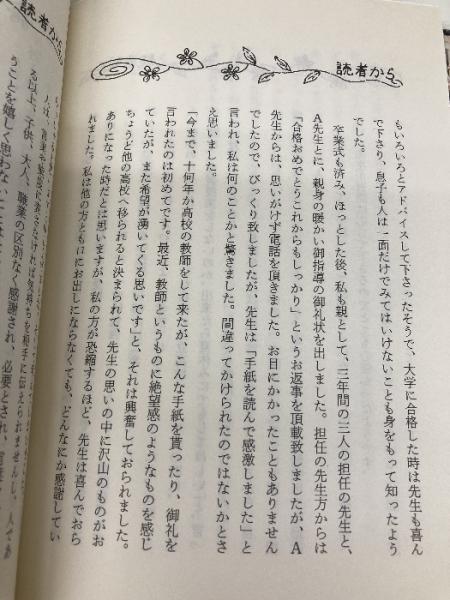 読者から
もいろいろとアドバイスして下さったそうで、大学に合格した時は先生も喜ん
で下さり、息子も人は一面だけでみてはいけないことも身をもって知ったよう
でした。
卒業式も済み、ほっとした後、私も親として、三年間の三人の担任の先生と、
A先生とに、親身の暖かい御指導の御礼状を出しました。担任の先生方からは
「合格おめでとうこれからもしっかり」というお返事を頂載致しましたが、A
先生からは、思いがけず電話を頂きました。お目にかかったこともありません
でしたので、びっくり致しましたが、先生は「手紙を読んで感激しました」と
言われ、私は何のことかと驚きました。間違ってかけられたのではないかとさ
え思いました。
「今まで、十何年か高校の教師をして来たが、こんな手紙を貰ったり、御礼を
言われたのは初めてです。最近、教師というものに絶望感のようなものを感じ
ていたが、また希望が湧いてくる思いです」と、それは興奮しておられました。
ちょうど他の高校へ移られると決まられて、先生の思いの中に沢山のものがお
ありになった時だとは思いますが、私の方が恐縮するほど、先生は喜んでおら
れました。私は他の方ともにお出しにならなくても、どんなにか感謝してい
読者から
る以上、子供、大人、職業の区別なく感謝され、必要とされ、
うことを嬉しく思わない